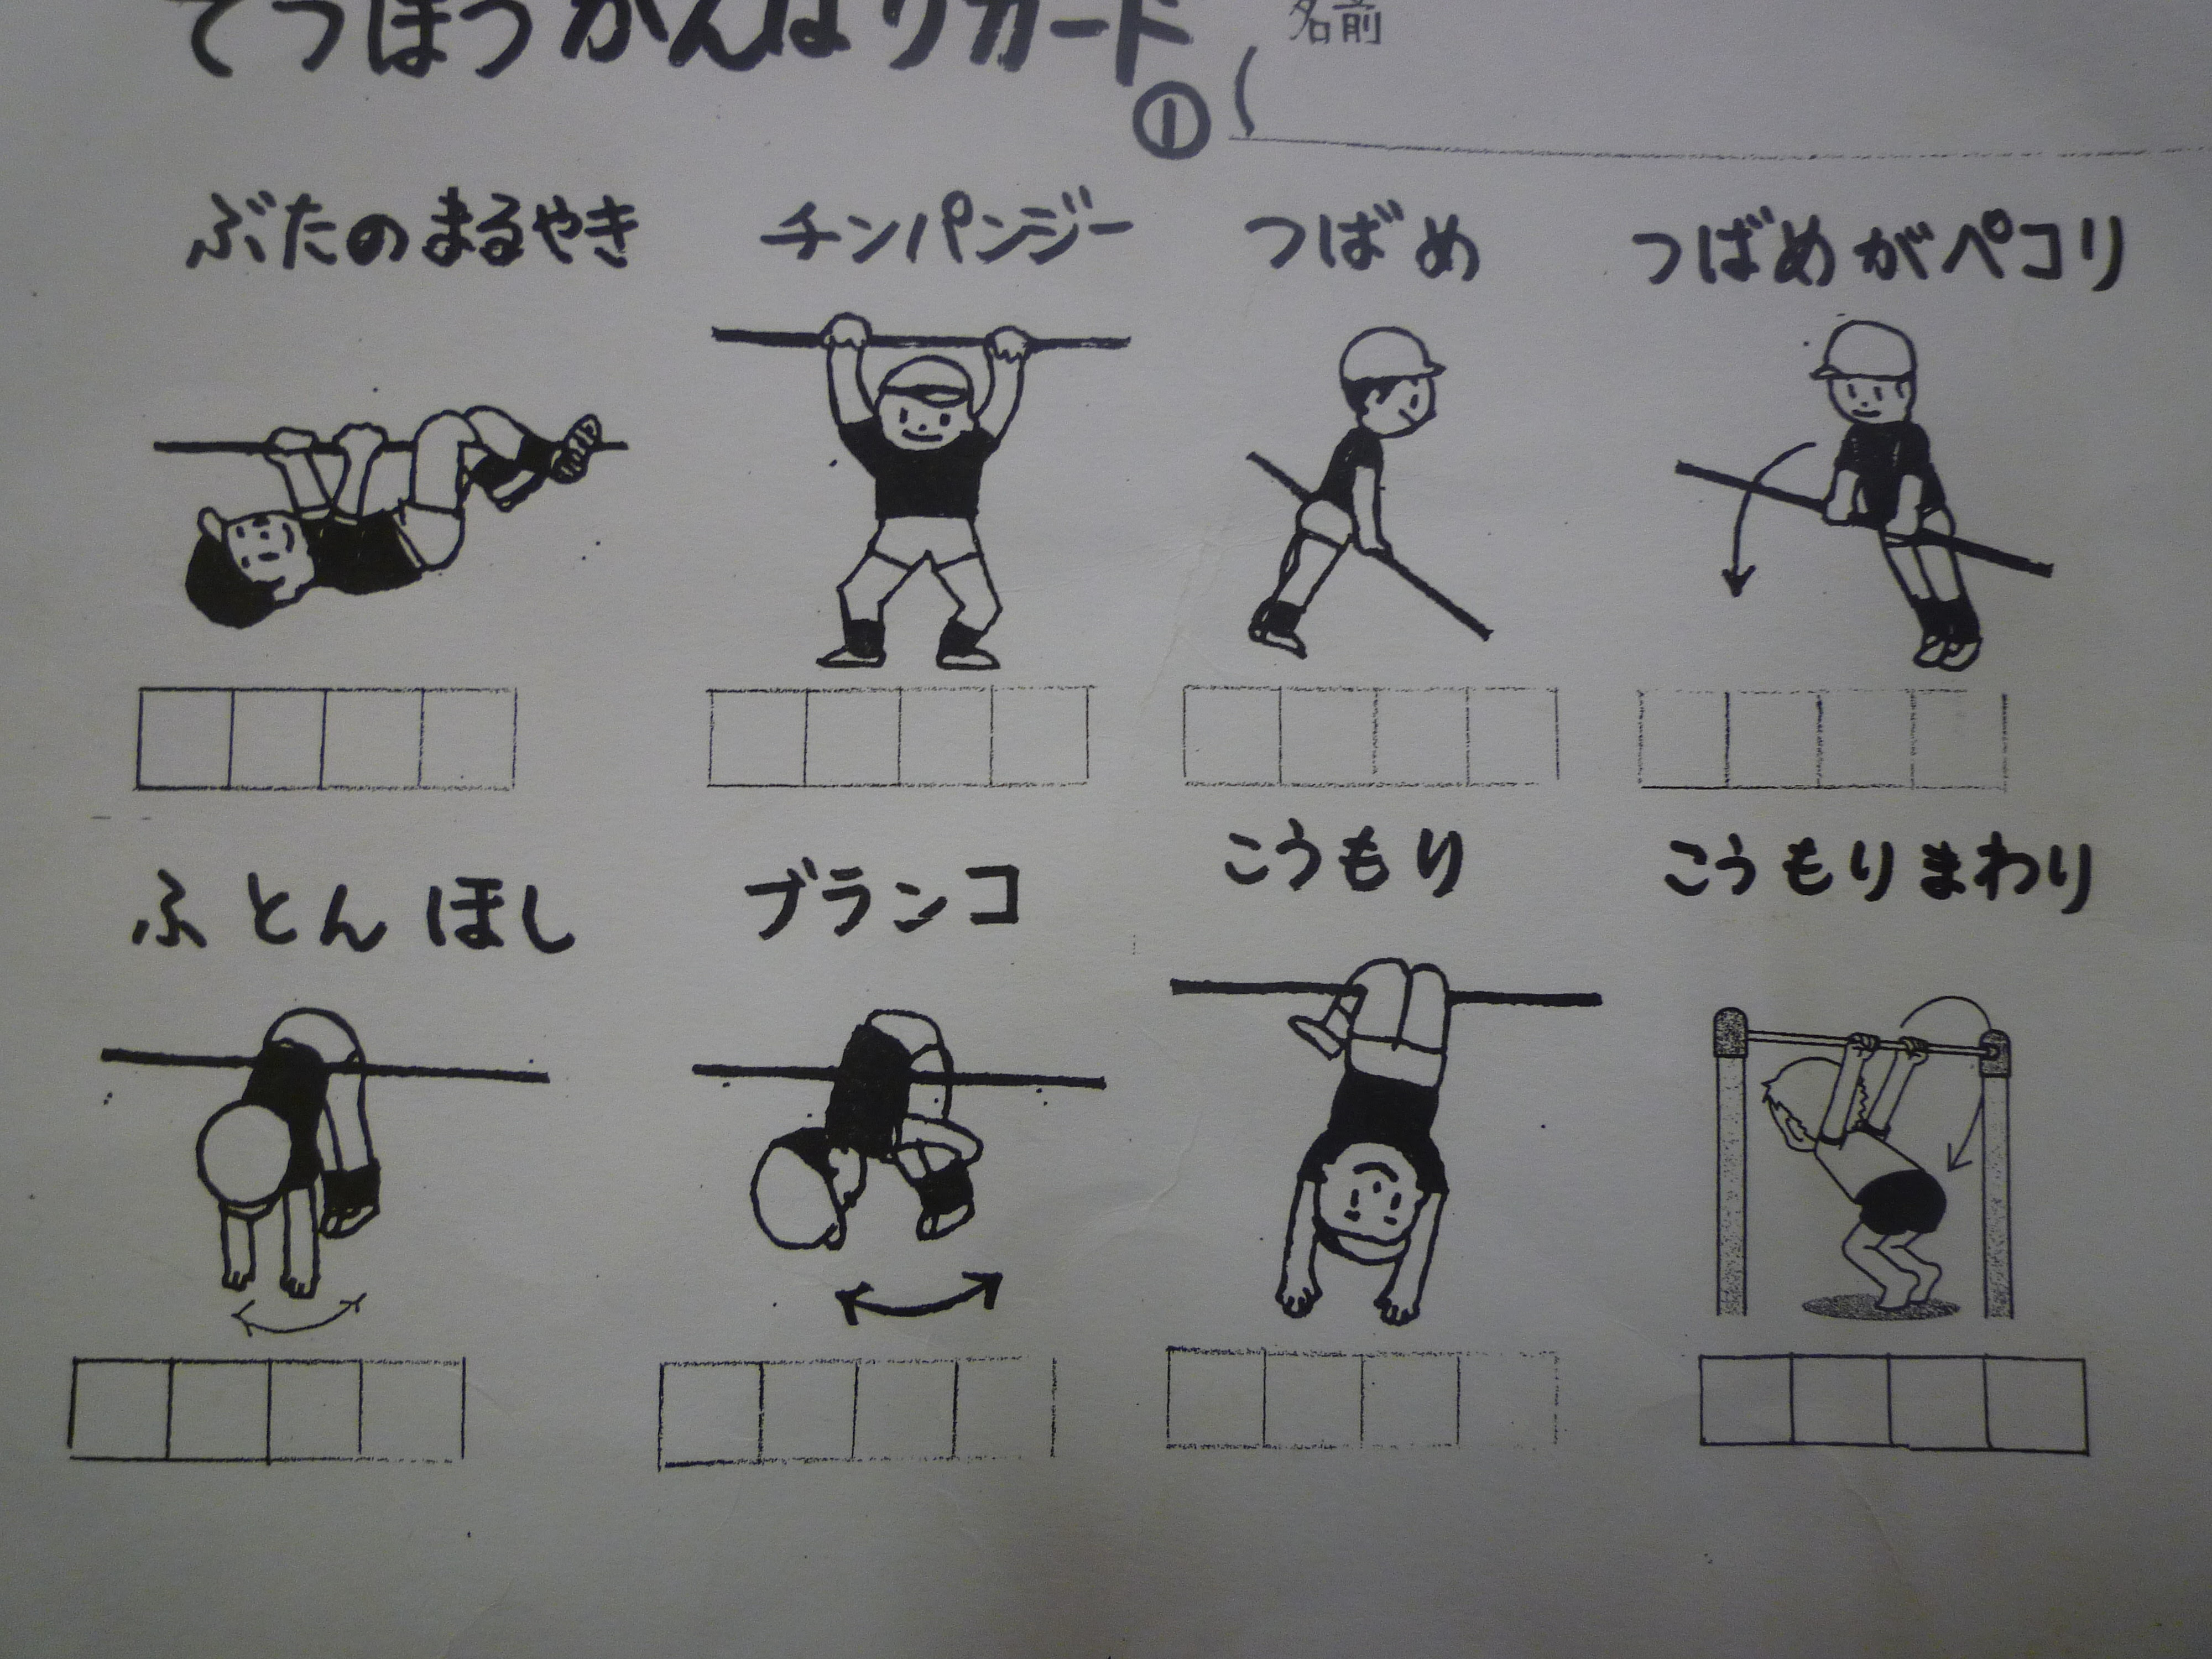 てつぼうがんばりカード
①
名前
(
ぶたのまるやき
チンパンジー
つばめ
つばめがペコリ
ふとんほし
ブランコ
こうもり
こうもりまわり